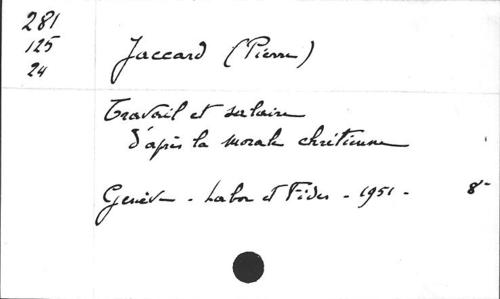 281
125
24
Jaccard (Pierre)
Travail et salaire
d'après la morale chrétienne
Genève - Labor et Fides - 1951 - 8°